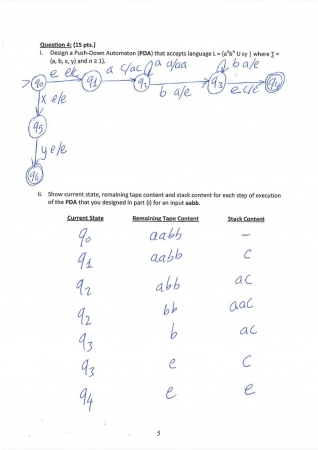 Question 4: (15 pts.)
i. Design a Push-Down Automaton (PDA) that accepts language L = {aⁿbⁿ U xy | where ∑ =
{a, b, x, y} and n ≥ 1}.
q0 e e/c q1 a c/ac q2 a a/aa b a/e q3 b a/e e c/e q4
x e/e
q5
y e/e
q6
ii. Show current state, remaining tape content and stack content for each step of execution
of the PDA that you designed in part (i) for an input aabb.
Current State Remaining Tape Content Stack Content
q0 aabb –
q1 aabb c
q2 abb ac
q2 bb aac
q3 b ac
q3 e c
q4 e e
5